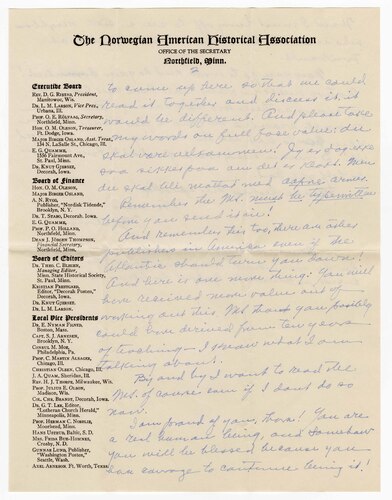 The Norwegian American Historical Association
OFFICE OF THE SECRETARY
Northfield, Minn.
2
Executive Board
REV. D. G. RISTAD, President,
Manitowoc, Wis.
DR. L. M. LARSON, Vice Pres.,
Urbana, Ill.
PROF. O. E. RÖLVAAG, Secretary,
Northfield, Minn.
HON. O. M. OLESON, Treasurer,
Ft. Dodge, Iowa.
MAJOR BIRGER OSLAND, Asst. Treas.,
134 N. LaSalle St., Chicago, Ill.
E. G. QUAMME,
1356 Fairmount Ave.,
St. Paul, Minn.
DR. KNUT GJERSET,
Decorah, Iowa.
Board of Finance
HON. O. M. OLESON.
MAJOR BIRGER OSLAND.
A. N. RYGG,
Publisher, "Nordisk Tidende",
Brooklyn, N. Y.
DR. T. STABO, Decorah, Iowa.
E. G. QUAMME.
PROF. P. O. HOLLAND,
Northfield, Minn.
DEAN J. JÖRGEN THOMPSON,
Financial Secretary,
Northfield, Minn.
Board of Editors
DR. THEO. C. BLEGEN,
Managing Editor,
Minn. State Historical Society,
St. Paul, Minn.
KRISTIAN PRESTGARD,
Editor, "Decorah Posten",
Decorah, Iowa.
DR. KNUT GJERSET.
DR. L. M. LARSON.
Local Vice Presidents
DR. E. NYMAN FIGVED,
Boston, Mass.
CAPT. S. J. ARNESEN,
Brooklyn, N. Y.
CONSUL M. MOE,
Philadelphia, Pa.
PROF. C. MARTIN ALSAGER,
Chicago, Ill.
CHRISTIAN OLSEN, Chicago, Ill.
J. A. QUAM, Sheridan, Ill.
REV. H. J. THORPE, Milwaukee, Wis.
PROF. JULIUS E. OLSON,
Madison, Wis.
COL. CHR. BRANDT, Decorah, Iowa.
DR. G. T. LEE, Editor,
"Lutheran Church Herald",
Minneapolis, Minn.
PROF. HERMAN C. NORDLIE,
Moorhead, Minn.
HANS USTRUD, Baltic, S. D.
MRS. FRIDA BUE-HOMNES,
Crosby, N. D.
GUNNAR LUND, Publisher,
"Washington Posten",
Seattle, Wash.
AXEL ARNESON, Ft. Worth, Texas.
to come up here so that we could
read it together and discuss it, it
would be different. And please take
my words on full face value: du
skal være velkommen!
det er klart. Men
du skal till neattat need
Remember the Ms. must be typewritten
before you send it in!
And remember this too, there are other
publishers in America even if the
Atlantic should turn you down!
And here is one more thing: You will
have received more value out of
working out this Ms. than you possibly
could have derived from ten years
of teaching – I know what I am
talking about.
By and by I want to read the
Ms. of course even if I don't do so
now.
I am proud of you, Thora! You are
a real human being, and somehow
you will be blessed because you
have courage to continue being it!